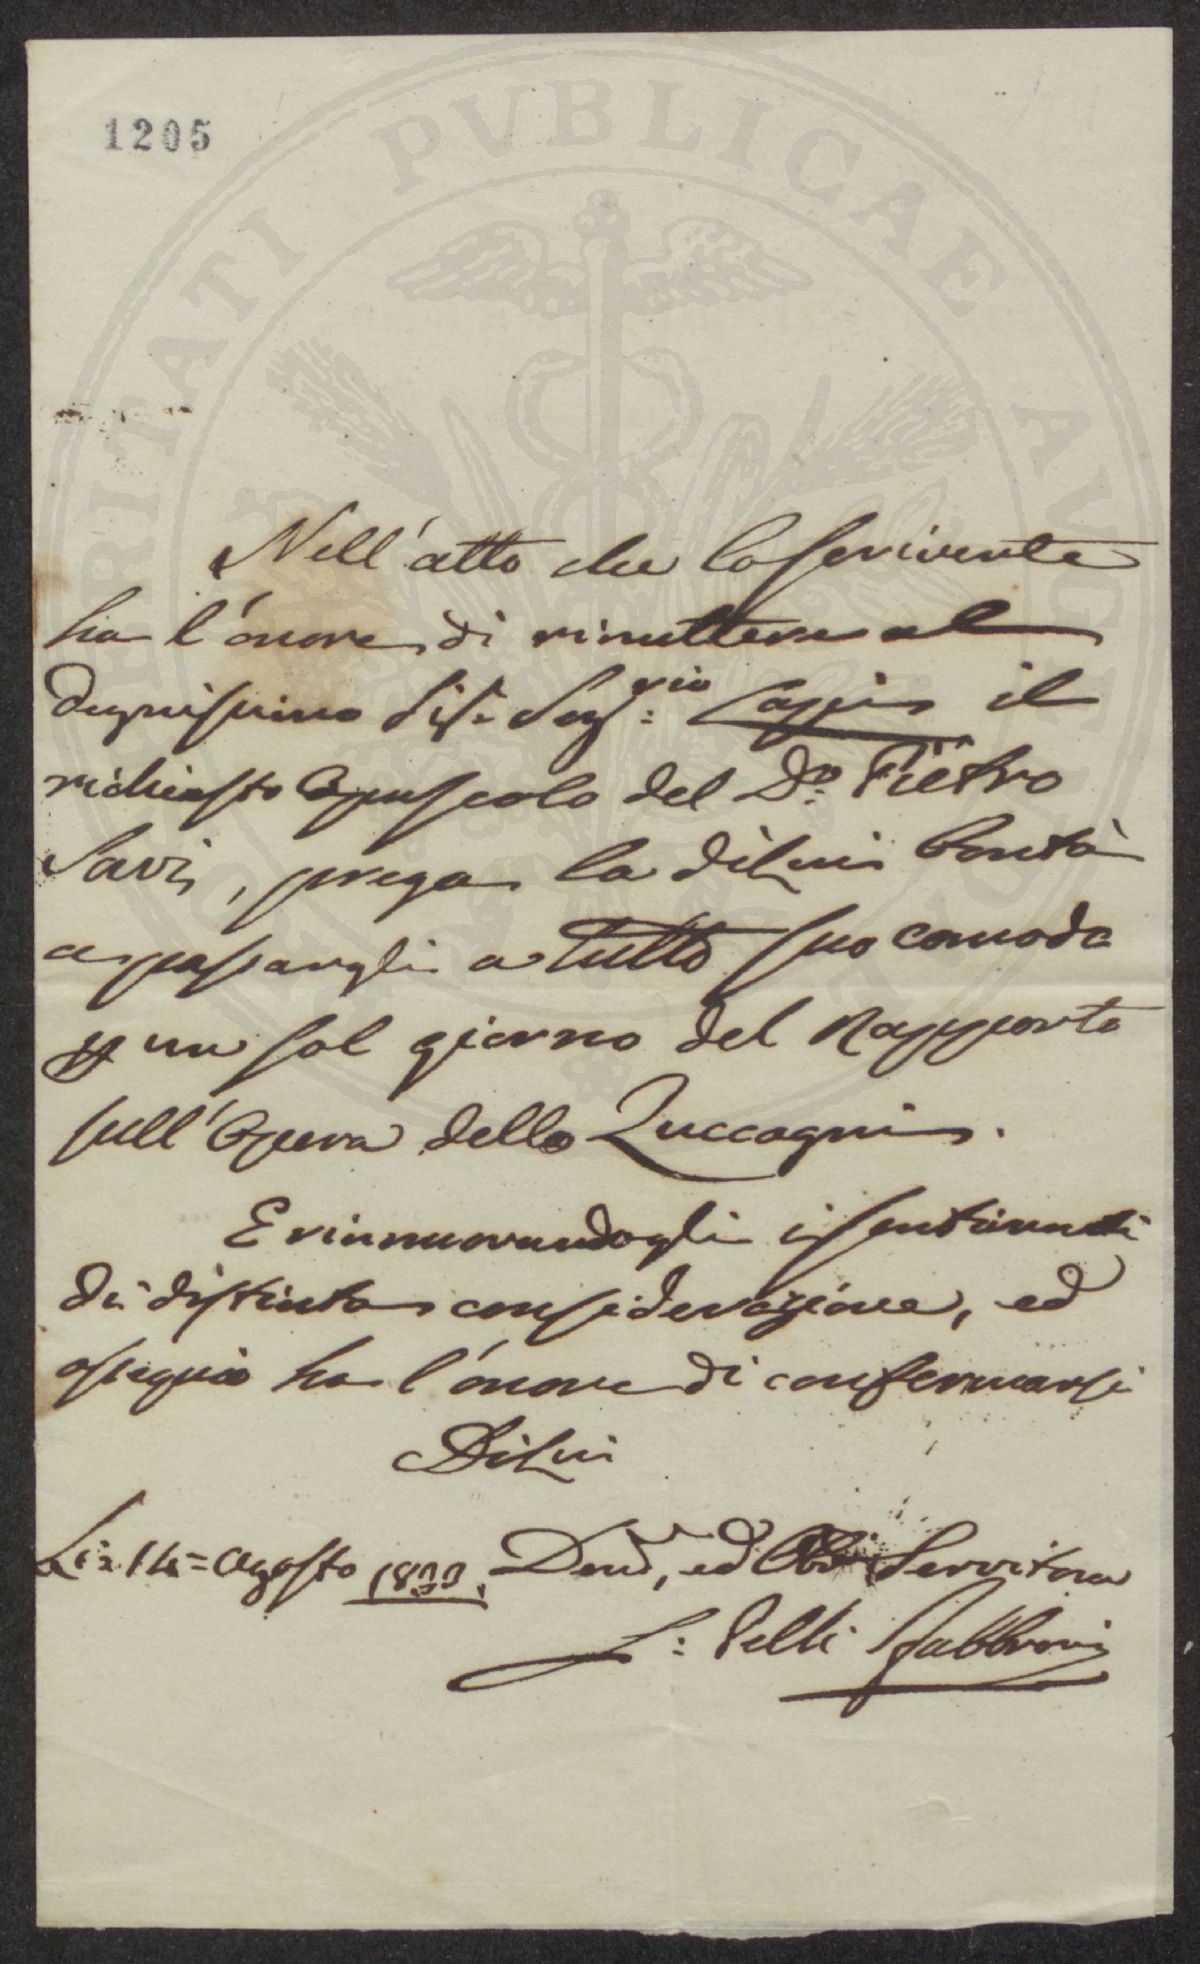 1205
PROSPERITATI PUBLICAE AUGENDAE
Nell'atto che lo scrivente
ha l'onore di rimettere al
degnissimo Sigr. Segrio: Lapi il
richiesto Opuscolo del Dr. Pietro
Savi, prega la di Lui bontà
a passargli a tutto suo comodo
p un sol giorno del Rapporto
sull'Opera dello Zuccagni.
E rinnuovandogli i sentimenti
di distinta considerazione, ed
ossequio ha l'onore di confermarsi
Di Lui
Li: 14= Agosto Dev., ed Obb. Servitore
L: Pelli Fabbroni